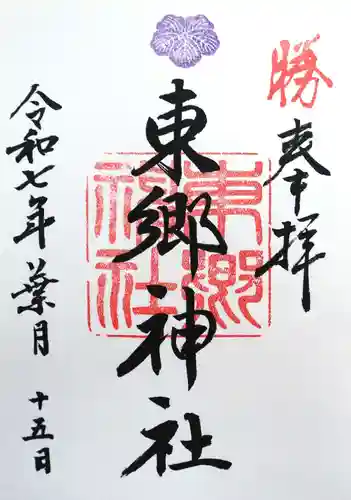 勝
奉拝
東郷神社
東郷神社
令和七年葉月
十五日